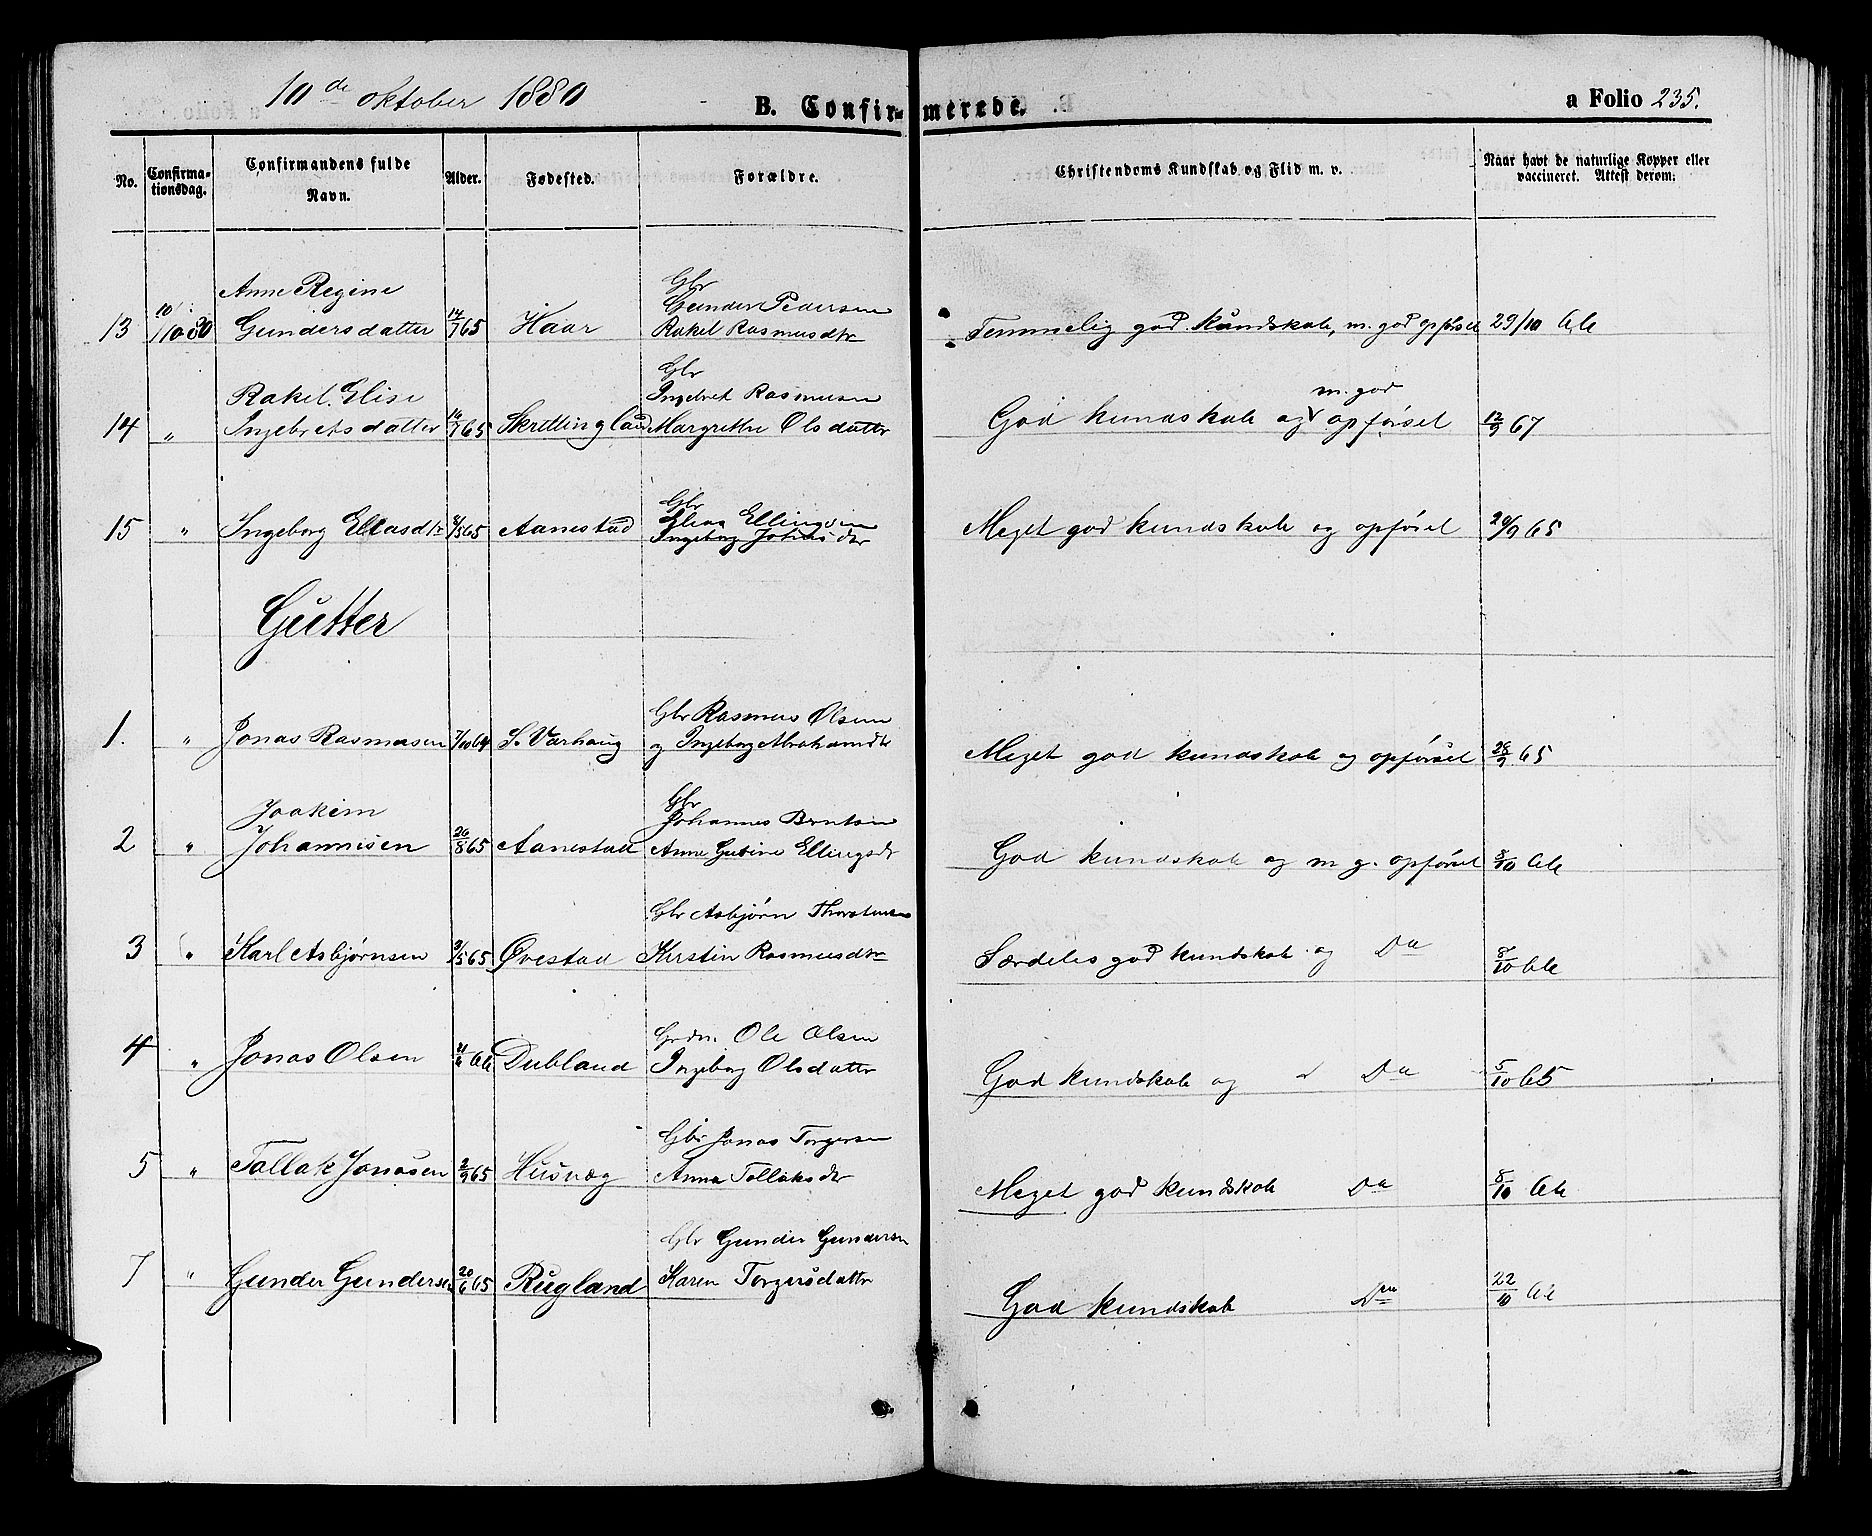 10de oktober 1880
B. Confirmerede.
a Folio 235.
No.
Confirmationsdag.
Confirmandens fulde Navn.
Alder.
Fødested.
Forældre.
Christendoms Kundskab og Flid m. v.
Naar havt de naturlige Kopper eller vaccineret. Attest derom.
Anne Regine
Gbr
Gunder Pedersen
13 10/10 80 Gundersdatter 14/7 65 Haar Rakel Rasmusdtr Temmelig god kundskab, m. god opførsel 29/10 66
Gbr
Rakel Elise Ingebret Rasmusen m. god
14 " Ingebretsdatter 16/7 65 Skretlingland Margrethe Olsdatter God kundskab og opførsel 12/9 67
Gbr
Elias Ellingsen
15 " Ingeborg Eliasdtr 65 Aanestad Ingeborg dtr Meget god kundskab og opførsel 65
Gutter
Gbr Rasmus Olsen
1. " Jonas Rasmusen 7/10 64 S. Varhaug og Ingeborg Abrahamdtr Meget god kundskab og opførsel 28/9 65
Gbr
Joakim Johannes Berntsen
2 " Johannisen 26/8 65 Aanestad Anne Gurine Ellingsdtr God kundskab og m g. opførsel 8/10 66
Gbr Asbjørn Thorstensen
3 " Karl Asbjørnsen 9/5 65 Øvestad Kirstin Rasmusdtr Særdeles god kundskab og Do 8/10 66
Ole Olsen
4 " Jonas Olsen Dubland Ingeborg Olsdatter God kundskab og Do 5/10 65
Gbr Jonas Torgersen
5 " Tallak Jonasen 2/9 65 Husvæg Anna Tollaksdtr Meget god kundskab Do 8/10 66
Gbr Gunder Gundersen
7 " Gunder Gundersen 20/6 65 Rugland Karen Torgersdatter God kundskab Do 22/10 66